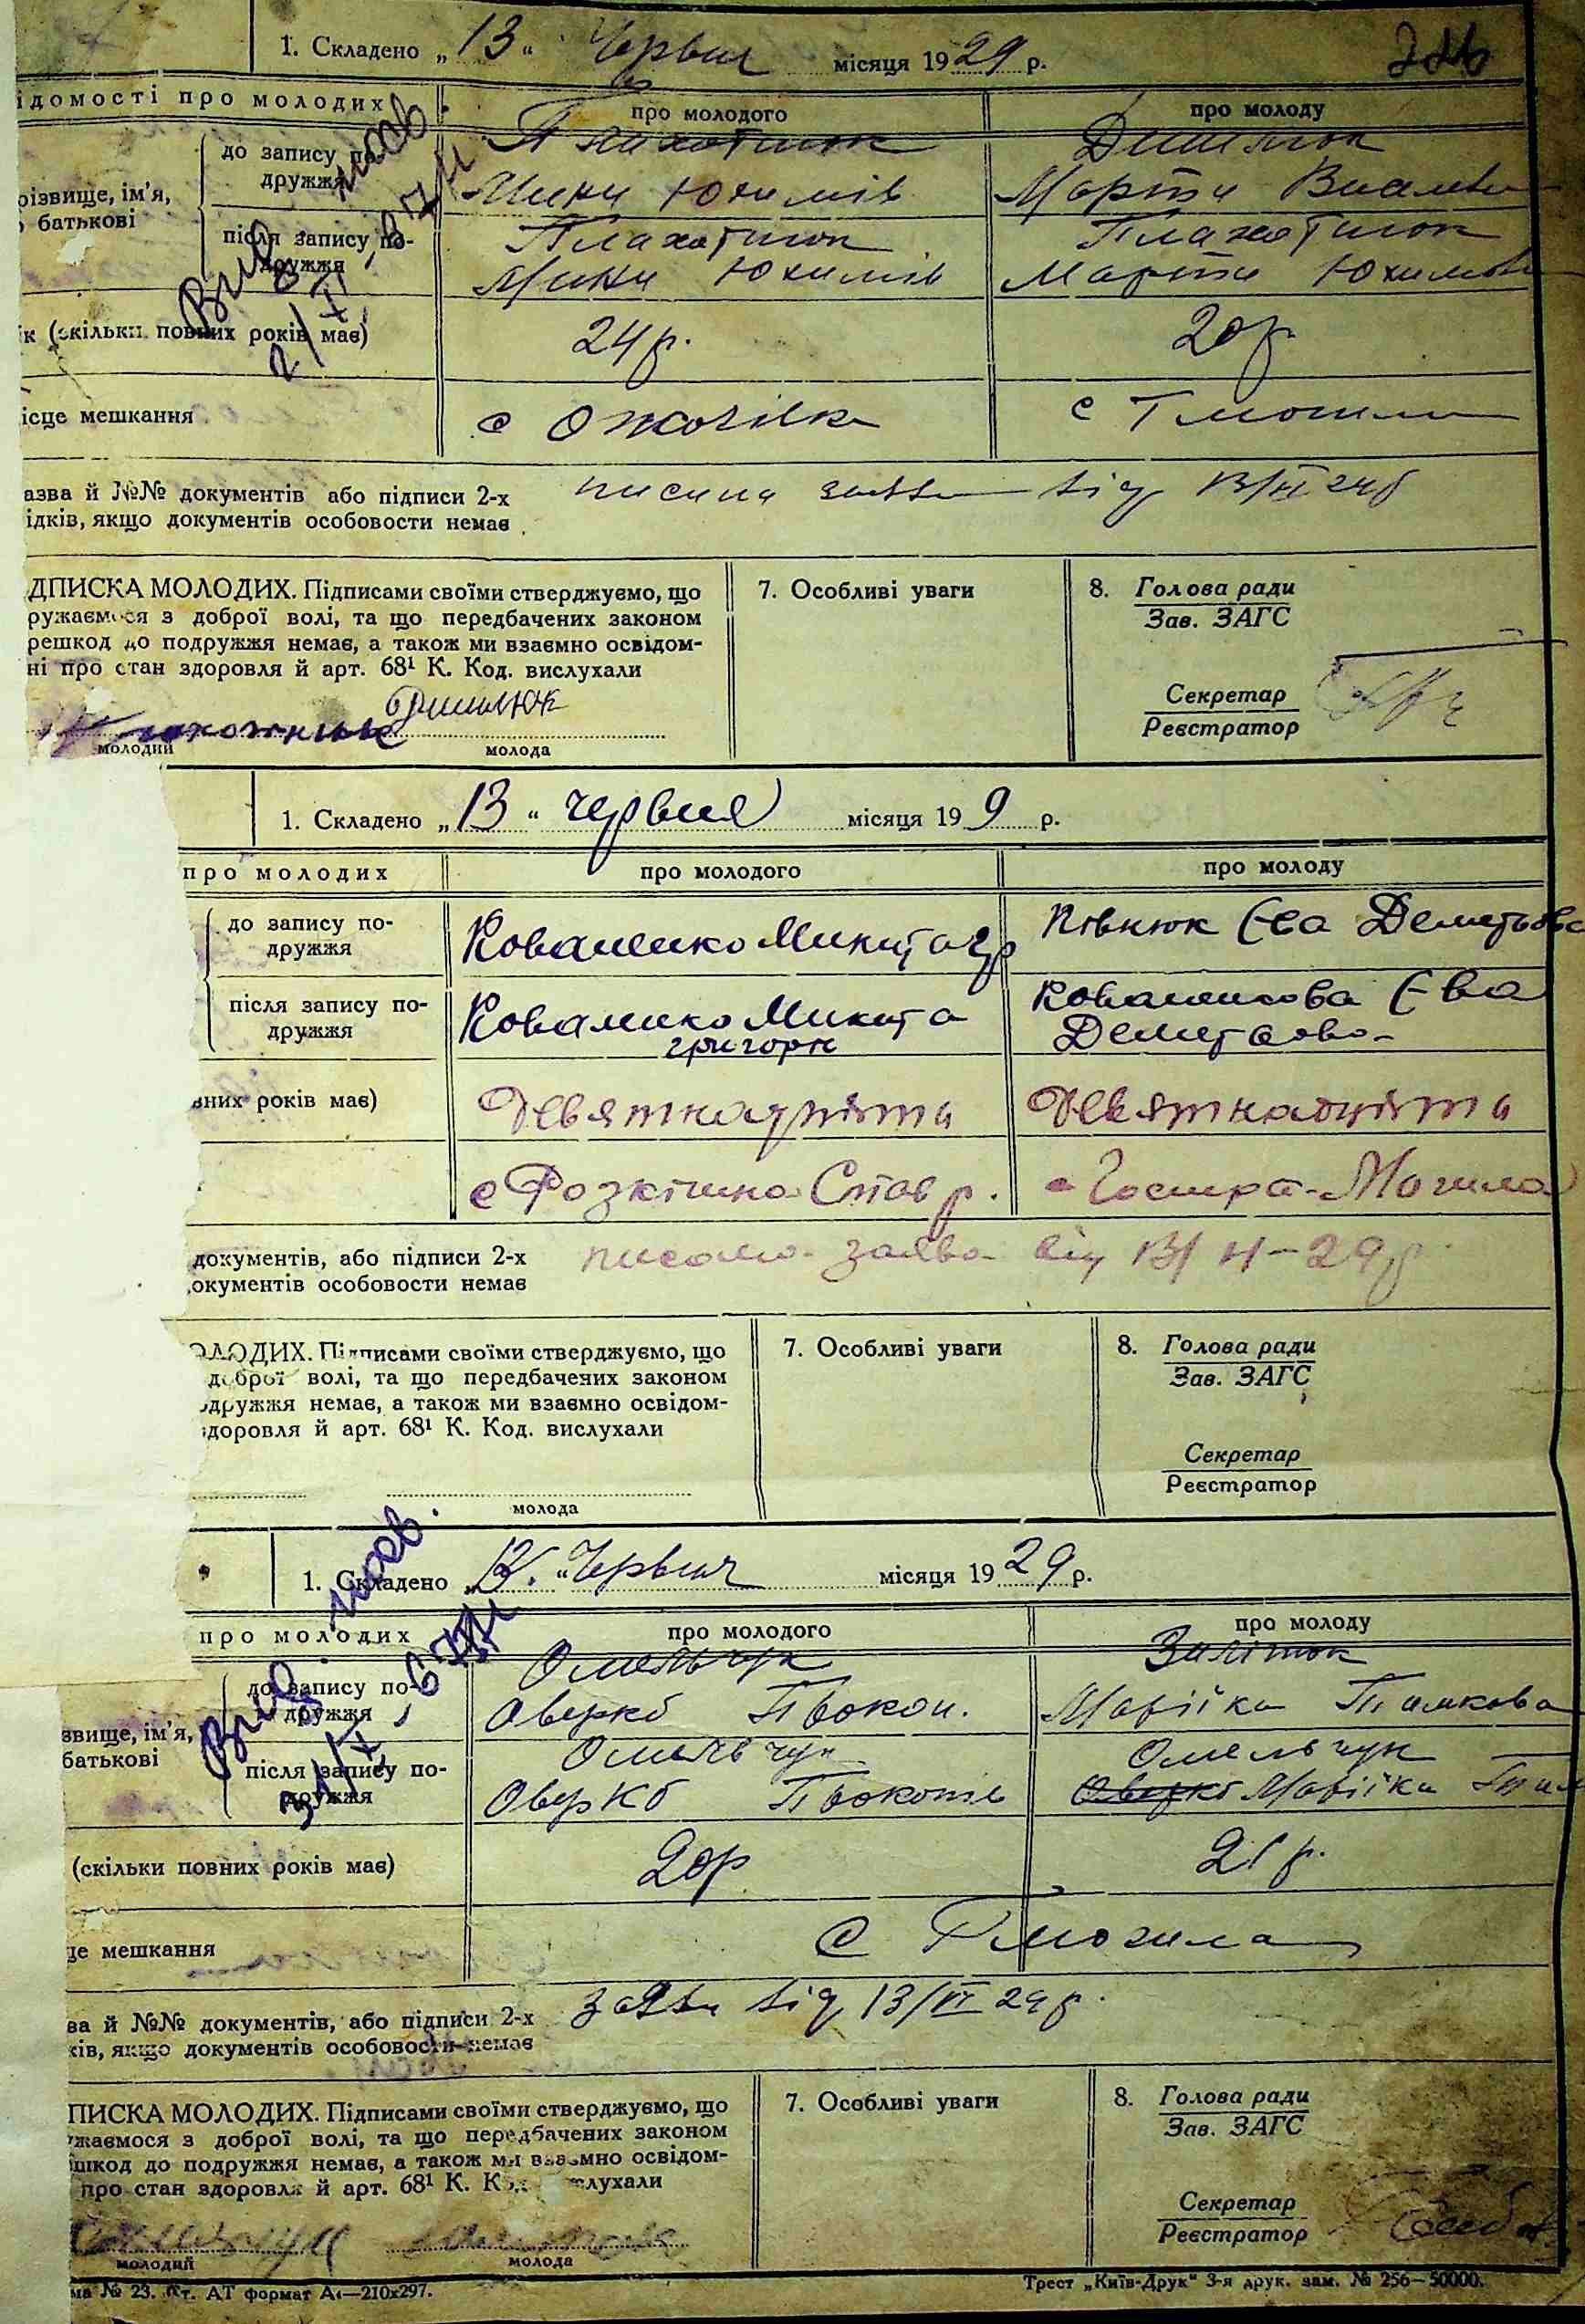 1. Складено „13“ Червня місяця 1929 р.
ідомості про молодих
про молодого
про молоду
різвище, ім'я,
батькові
до запису по-
дружжя
Плахотнюк
Юхимів
Марта
після запису по-
дружжя
Плахотнюк
Юхимів
Плахотнюк
Марта
к (скільки повних років має)
24 р.
20 р.
ісце мешкання
с
с
азва й №№ документів або підписи 2-х
ідків, якщо документів особовости немає
від 13/VI 29 р
ДПИСКА МОЛОДИХ. Підписами своїми стверджуємо, що
ружаємося з доброї волі, та що передбачених законом
решкод до подружжя немає, а також ми взаємно освідом-
ні про стан здоровля й арт. 68¹ К. Код. вислухали
молодий
молода
7. Особливі уваги
8. Голова ради
Зав. ЗАГС
Секретар
Реєстратор
1. Складено „13“ червня місяця 19 9 р.
про молодих
про молодого
про молоду
до запису по-
дружжя
Коваленко Микита Гр
Півнюк Єва Деметьова
після запису по-
дружжя
Коваленко Микита
григорів
Коваленкова Єва
вних років має)
Девятнадцять
Девятнадцять
с Розкішна Став р.
Гостра-Могила
документів, або підписи 2-х
окументів особовости немає
заява від 13/ VI-29 р.
ОЛОДИХ. Підписами своїми стверджуємо, що
доброї волі, та що передбачених законом
одружжя немає, а також ми взаємно освідом-
здоровля й арт. 68¹ К. Код. вислухали
молода
7. Особливі уваги
8. Голова ради
Зав. ЗАГС
Секретар
Реєстратор
1. Складено „13.“ Червня місяця 1929 р.
про молодих
про молодого
про молоду
звище, ім'я,
батькові
до запису по-
дружжя
Омельчук
Оверко Прокоп.
Марійка Тимкова
після запису по-
дружжя
Омельчук
Оверко Прокопів
Омельчук
Оверко Марійка Тим
(скільки повних років має)
20 р
21 р.
це мешкання
с Гмогила
ва й №№ документів, або підписи 2-х
ків, якщо документів особовости немає
заява від 13/VI 29 р.
ПИСКА МОЛОДИХ. Підписами своїми стверджуємо, що
ужаємося з доброї волі, та що передбачених законом
шкод до подружжя немає, а також ми взаємно освідом-
про стан здоровля й арт. 68¹ К. Код. вислухали
молодий
молода
7. Особливі уваги
8. Голова ради
Зав. ЗАГС
Секретар
Реєстратор
ма № 23. Пт. АТ формат А4—210х297.
Трест „Київ-Друк“ 3-я друк. зам. № 256—50000.